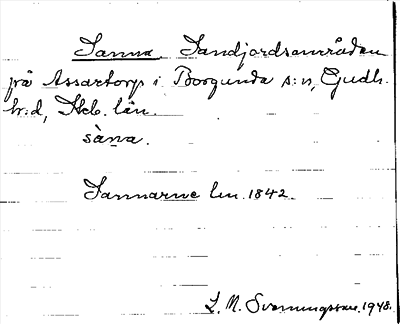 Sanna. Sandjordsområden
på Assartorp i Borgunda s:n, Gudh.
h:d, Skb. län.
sàna.
Sannarne lm. 1842.
L. M. Svenungsson. 1948.